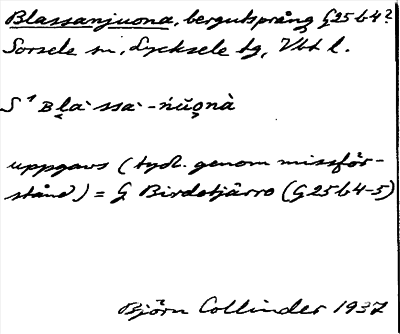 Blassanjuona, bergutsprång G25b4?
Sorsele sn, Lycksele tg, Vbt l.
uppgavs (tydl. genom missför-
stånd) = G Birdetjårro (G25b4-5)
Björn Collinder 1937